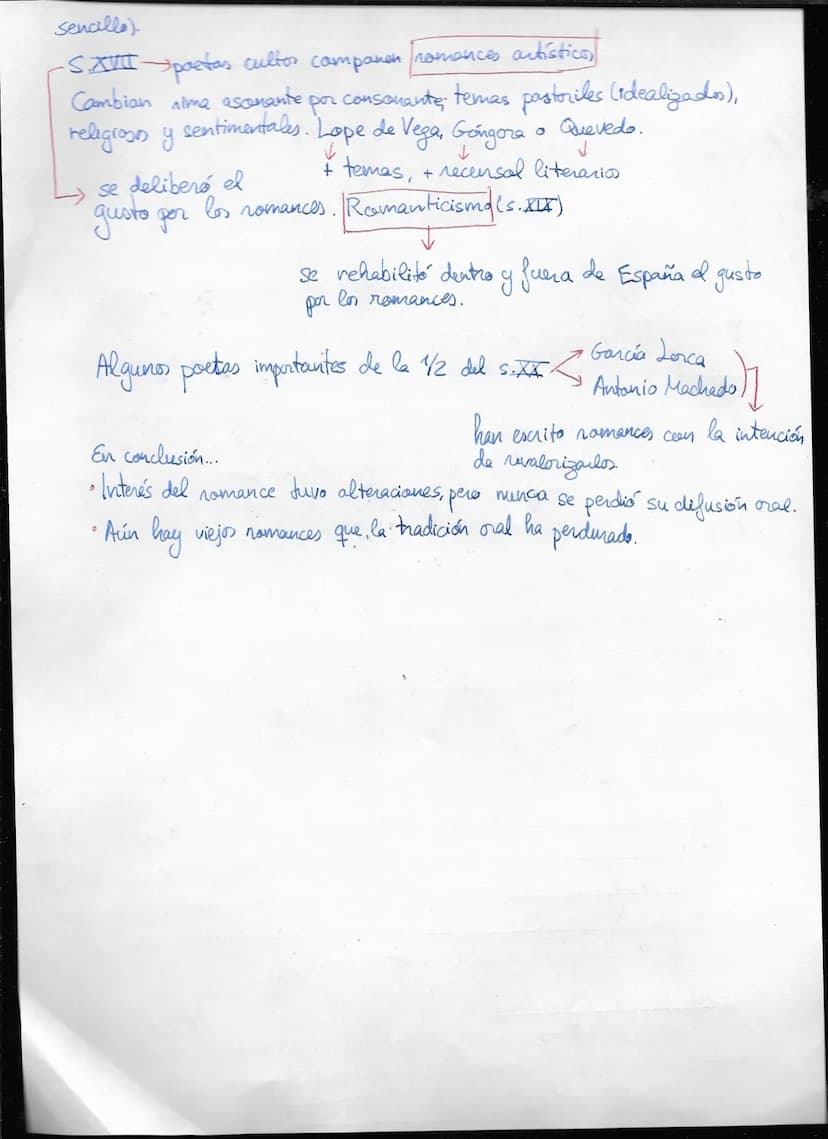 sencillo).
S.XVII → poetas cultos componen romances artísticos
Cambian rima asonante por consonante; temas pastoriles (idealizados),
religiosos y sentimentales. Lope de Vega, Góngora o Quevedo.
+ temas, + recensal literarios
se deliberó el
gusto por los romances. Romanticismo (s.XIX)
se rehabilitó dentro y fuera de España el gusto
por los romances.
Algunos poetas importantes de la 1/2 del s.XX
García Lorca
Antonio Machado
han escrito romances con la intención
de revalorizarlos.
En conclusión...
• Interés del romance tuvo alteraciones, pero nunca se perdió su difusión oral.
• Aún hay viejos romances que la tradición oral ha perdurado.